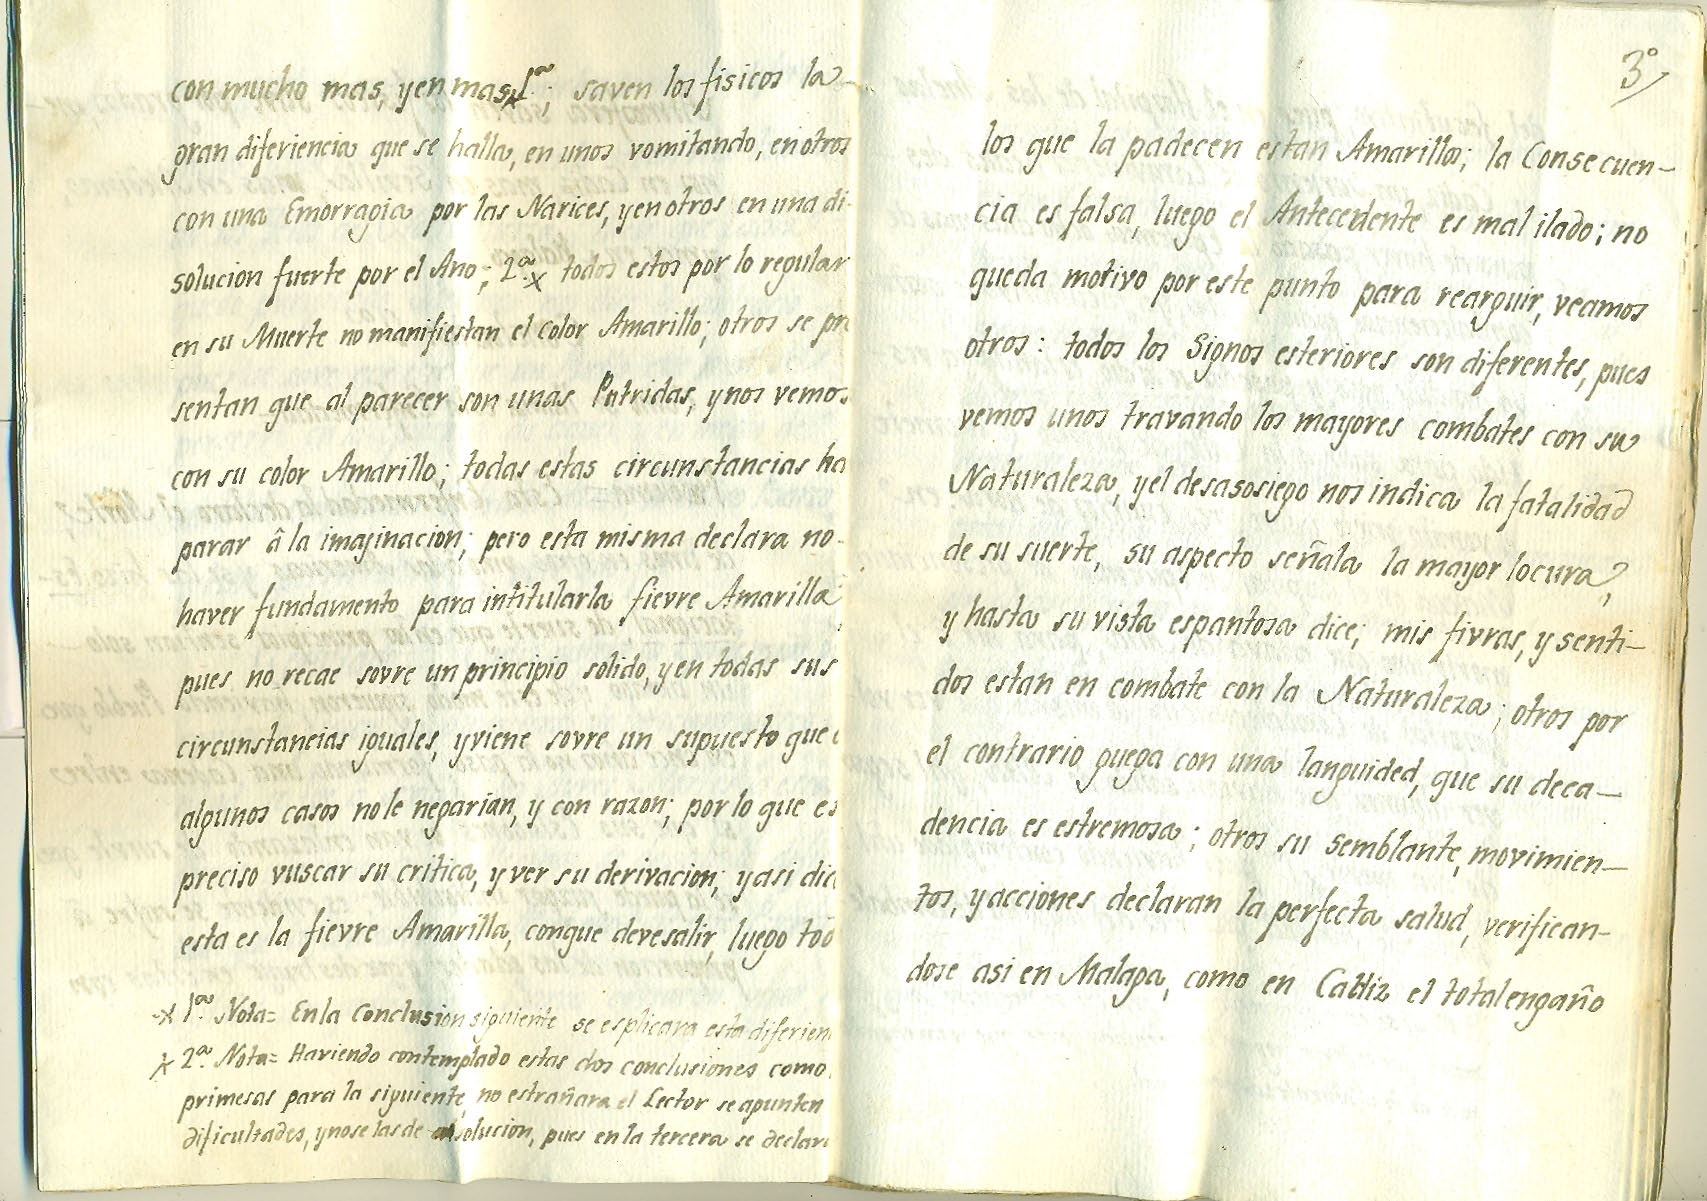 con mucho mas, y en mas x 1ª; saven los fisicos la
gran diferiencia que se halla, en unos vomitando, en otros
con una Emorragia por las Narices, y en otros en una di-
solucion fuerte por el Ano; 2ª x todos estos por lo regular
en su Muerte no manifiestan el color Amarillo; otros se pre
sentan que al parecer son unas Putridas, y nos vemos
con su color Amarillo; todas estas circunstancias ha
parar â la imajinacion; pero esta misma declara no
haver fundamento para intitularla fievre Amarilla
pues no recae sovre un principio solido, y en todas sus
circunstancias iguales, y viene sovre un supuesto que
algunos casos no le negarian, y con razon; por lo que es
preciso vuscar su critica, y ver su derivacion; y asi dic
esta es la fievre Amarilla, conque deve salir, luego tod
x 1ª Nota= En la Conclusion siguiente se esplicara esta diferien
x 2ª Nota= Haviendo contemplado estas dos conclusiones como
primesas para la siguiente, no estrañara el Lector se apunten
dificultades, y no se las de solucion, pues en la tercera se declara
3º
los que la padecen estan Amarillos; la Consecuen-
cia es falsa, luego el Antecedente es mal ilado; no
queda motivo por este punto para rearguir, veamos
otros: todos los Signos esteriores son diferentes, pues
vemos unos travando los mayores combates con su
Naturaleza, y el desasosiego nos indica la fatalidad
de su suerte, su aspecto señala la mayor locura,
y hasta su vista espantosa dice; mis fivras, y senti-
dos estan en combate con la Naturaleza; otros por
el contrario guega con una languided, que su deca-
dencia es estremosa; otros su semblante, movimien-
tos, y acciones declaran la perfecta salud, verifican-
dose asi en Malaga, como en Cadiz el total engaño